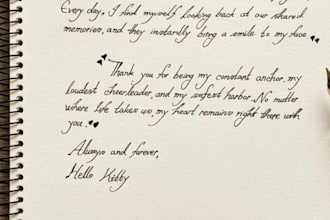 Every day, I find myself looking back at our shared
memories, and they instantly bring a smile to my face.
Thank you for being my constant anchor, my
loudest cheerleader, and my safest harbor. No matter
where life takes us, my heart remains right there with
you.
Always and forever,
Hello Kitty